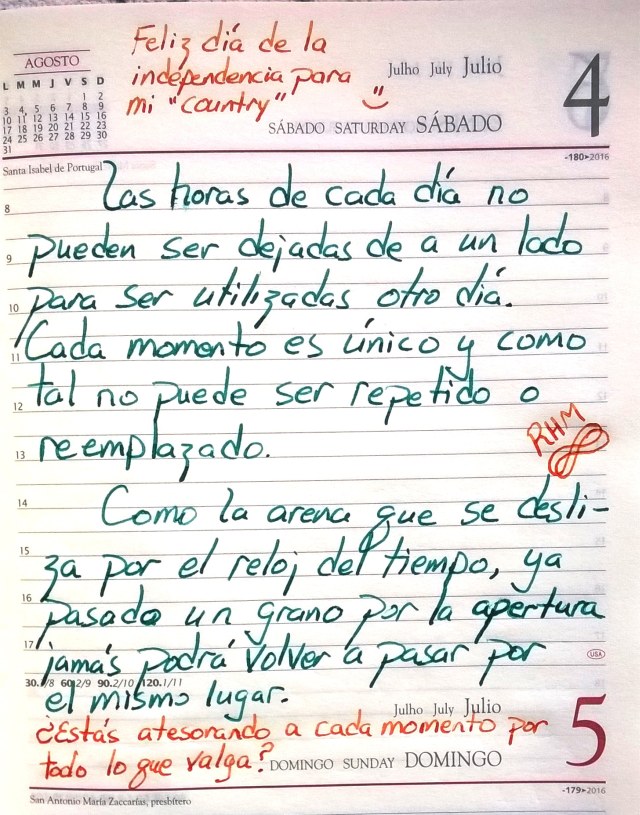 Feliz día de la
independencia para
mi "country"
AGOSTO
L M M J V S D
1 2
3 4 5 6 7 8 9
10 11 12 13 14 15 16
17 18 19 20 21 22 23
24 25 26 27 28 29 30
31
Julho July Julio
4
SÁBADO SATURDAY SÁBADO
Santa Isabel de Portugal
-180▸2016
8 Las horas de cada día no
9 pueden ser dejadas de a un lado
10 para ser utilizadas otro día.
11 Cada momento es único y como
12 tal no puede ser repetido o
13 reemplazado.
RHM
14 Como la arena que se desli-
15 za por el reloj del tiempo, ya
16 pasado un grano por la apertura
17 jamás podrá volver a pasar por
USA
30.1/8 60.2/9 90.2/10 120.1/11
el mismo lugar.
Julho July Julio
5
¿Estás atesorando a cada momento por
todo lo que valga?
DOMINGO SUNDAY DOMINGO
San Antonio María Zaccarías, presbítero
-179▸2016